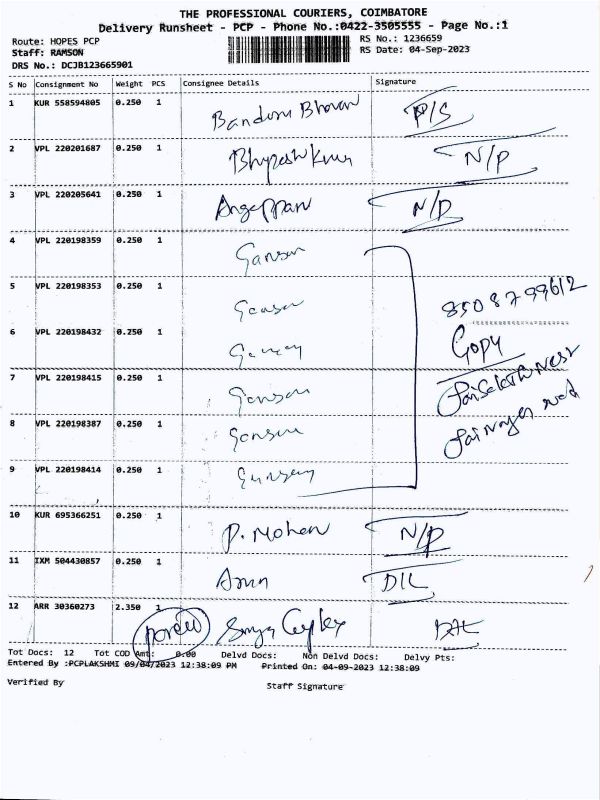 THE PROFESSIONAL COURIERS, COIMBATORE
Delivery Runsheet - PCP - Phone No.:0422-3505555 - Page No.:1
Route: HOPES PCP RS No.: 1236659
Staff: RAMSON RS Date: 04-Sep-2023
DRS No.: DCJB123665901
S No Consignment No Weight PCS Consignee Details Signature
1 KUR 558594805 0.250 1 P/S
2 VPL 220201687 0.250 1 N/P
3 VPL 220205641 0.250 1 Angappan N/D
4 VPL 220198359 0.250 1
5 VPL 220198353 0.250 1
8508799612
6 VPL 220198432 0.250 1 Gopy
7 VPL 220198415 0.250 1
8 VPL 220198387 0.250 1
9 VPL 220198414 0.250 1
10 KUR 695366251 0.250 1 P. Mohan N/P
11 IXM 504430857 0.250 1 Arun D/L
12 ARR 30360273 2.350 1
Tot Docs: 12 Tot COD Amt: 0.00 Delvd Docs: Non Delvd Docs: Delvy Pts:
Entered By :PCPLAKSHMI 09/04/2023 12:38:09 PM Printed On: 04-09-2023 12:38:09
Verified By Staff Signature